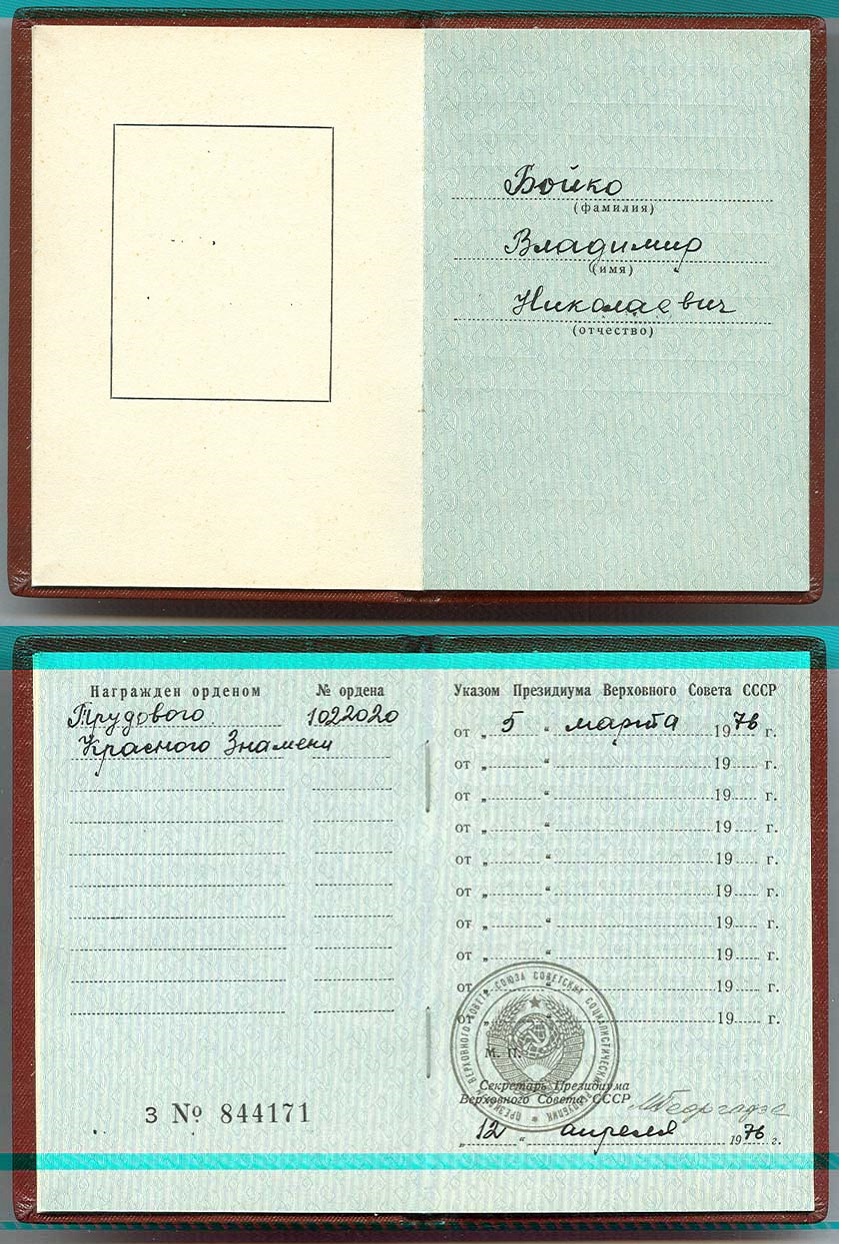 Бойко
(фамилия)
Владимир
(имя)
Николаевич
(отчество)
Награжден орденом № ордена
Трудового 1022020
Красного Знамени
З № 844171
Указом Президиума Верховного Совета СССР
от „ 5 “ марта 1976 г.
от „ “ 19 г.
от „ “ 19 г.
от „ “ 19 г.
от „ “ 19 г.
от „ “ 19 г.
от „ “ 19 г.
от „ “ 19 г.
от „ “ 19 г.
от „ “ 19 г.
М. П.
Секретарь Президиума
Верховного Совета СССР
МГеоргадзе
„ 12 “ апреля 1976 г.